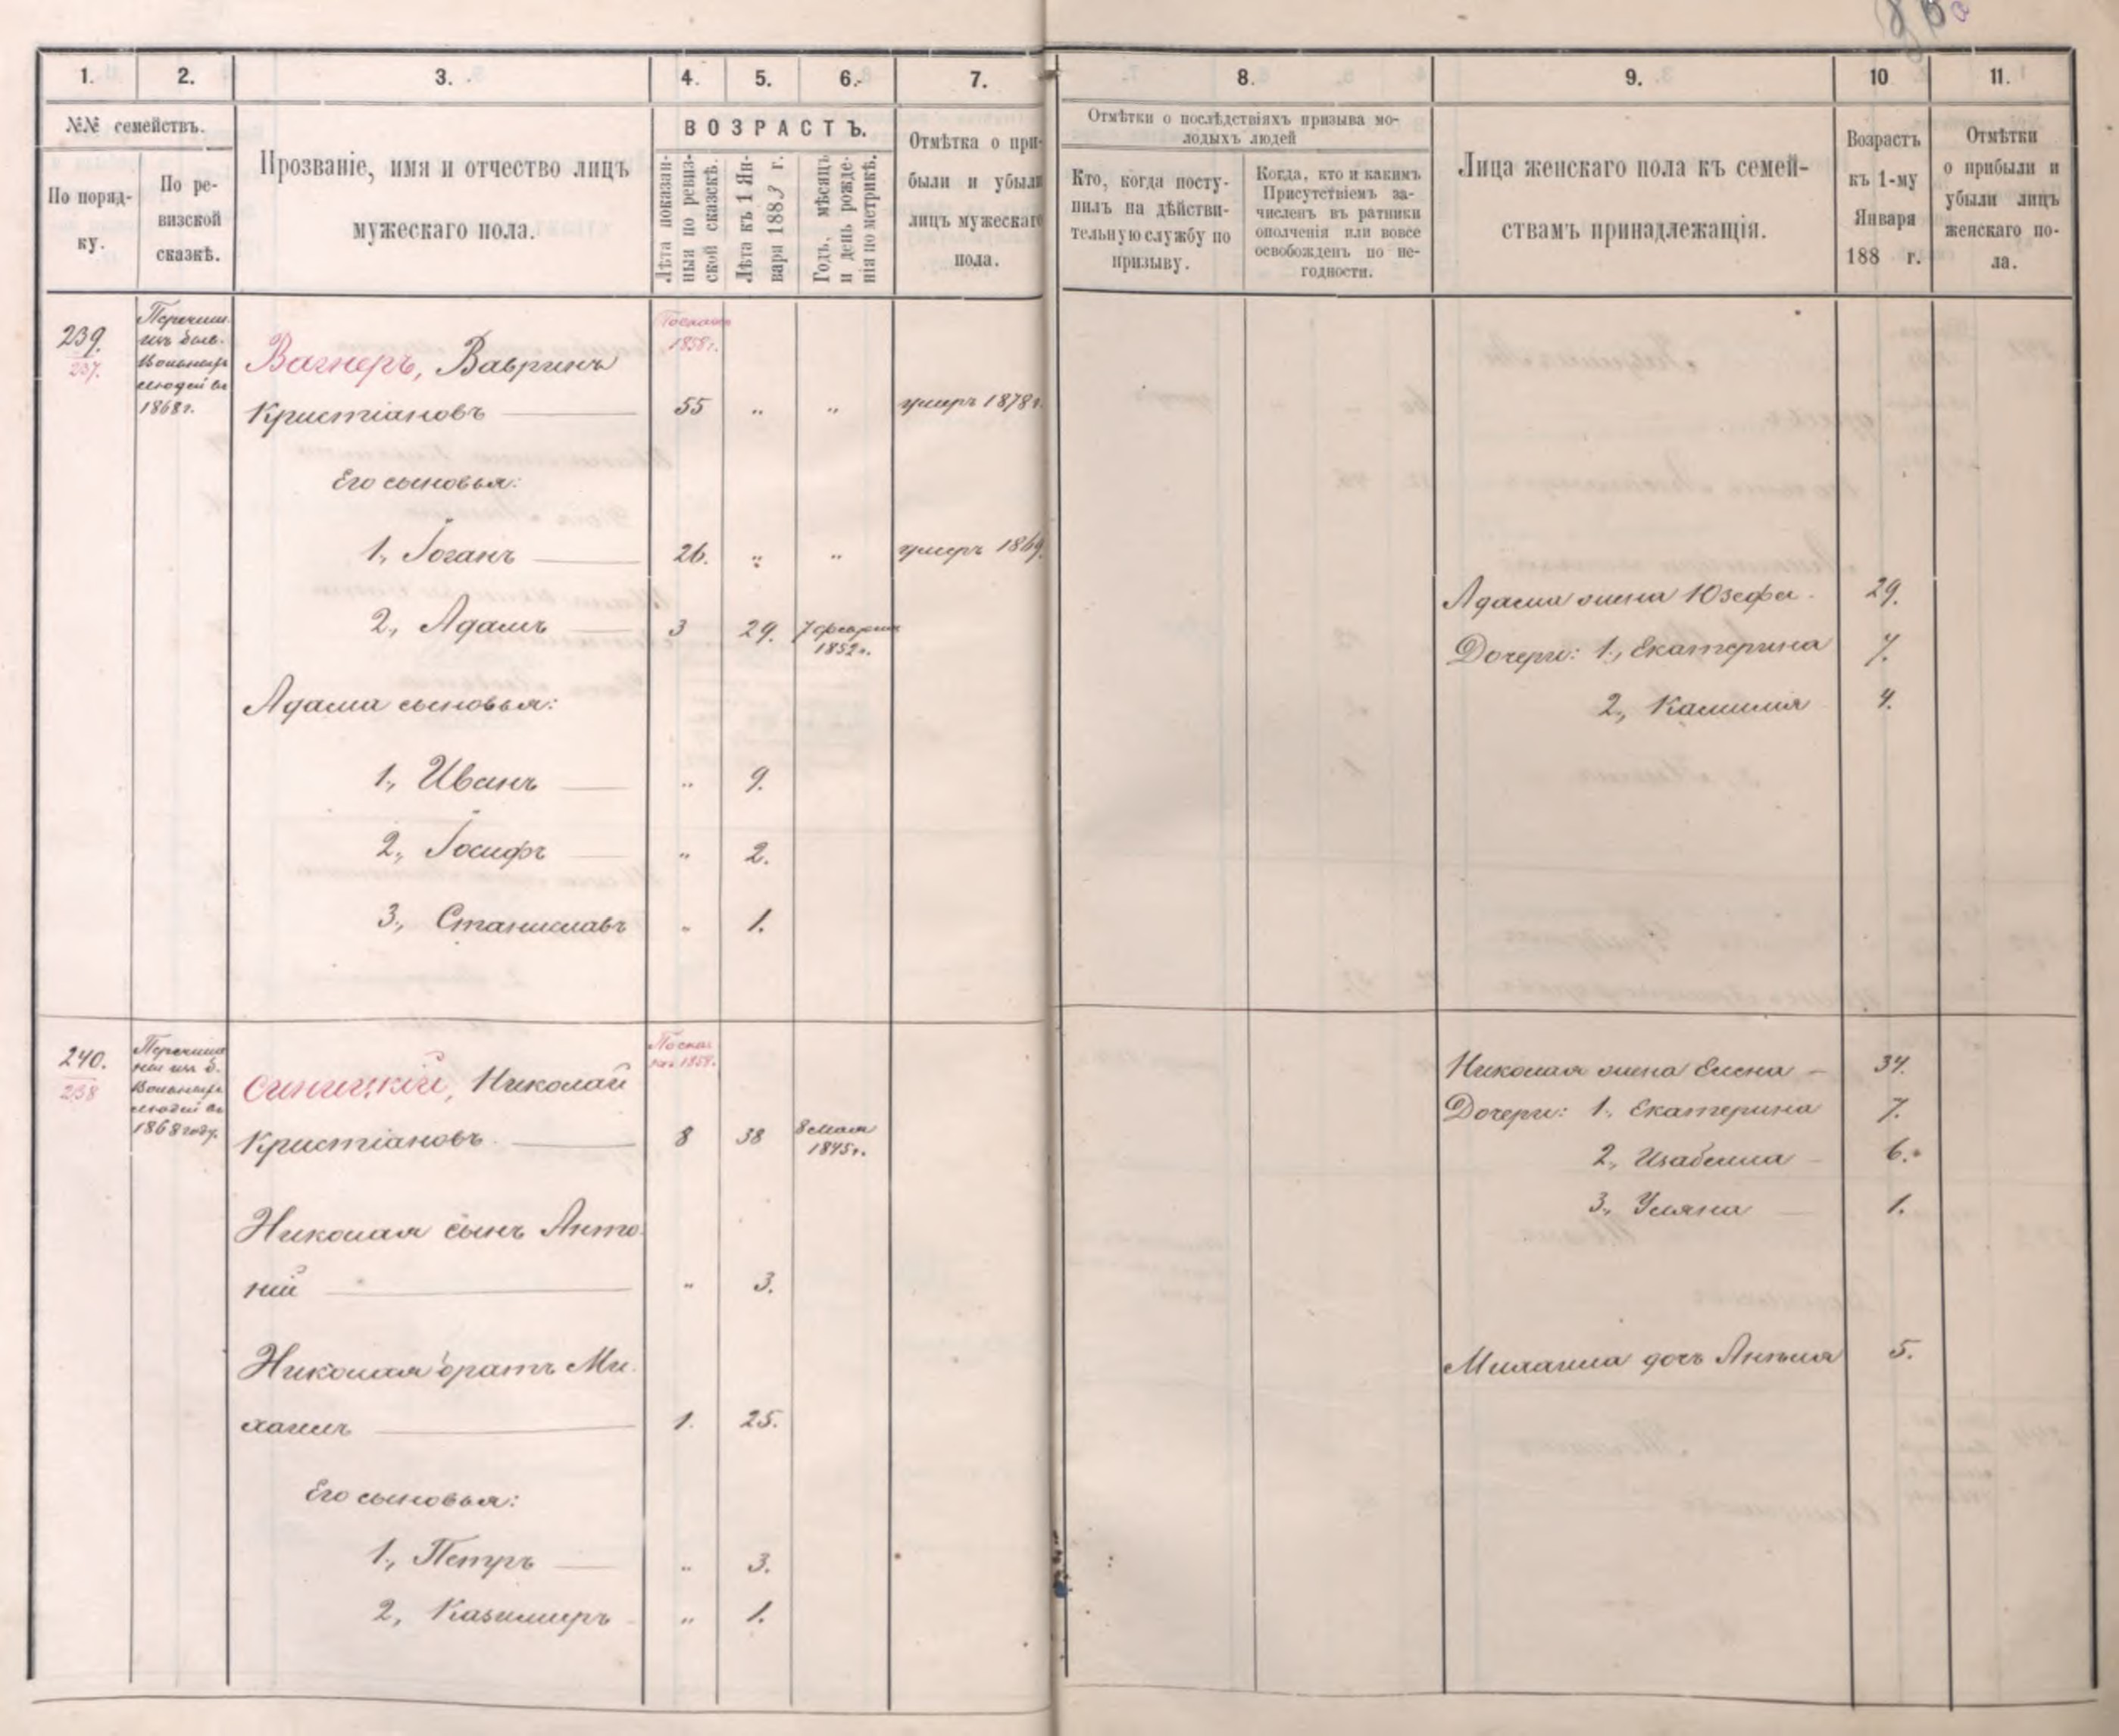 1.
2.
3.
4.
5.
6.
7.
8.
9.
10
11.
№№ семействъ.
По поряд-
ку.
По ре-
визской
сказкѣ.
Прозваніе, имя и отчество лицъ
мужескаго пола.
ВОЗРАСТЪ.
Лѣта показан-
ныя по ревиз-
ской сказкѣ.
Лѣта къ 1 Ян-
варя 1883 г.
Годъ, мѣсяцъ
и день рожде-
нія по метрикѣ.
Отмѣтка о при-
были и убыли
лицъ мужескаго
пола.
Отмѣтки о послѣдствіяхъ призыва мо-
лодыхъ людей
Кто, когда посту-
пилъ на дѣйстви-
тельную службу по
призыву.
Когда, кто и какимъ
Присутствіемъ за-
численъ въ ратники
ополченія или вовсе
освобожденъ по не-
годности.
Лица женскаго пола къ семей-
ствамъ принадлежащія.
Возрастъ
къ 1-му
Января
188 г.
Отмѣтки
о прибыли и
убыли лицъ
женскаго по-
ла.
239.
237.
1868 г.
1858 г.
Вагнеръ, Вавринъ
Кристіановъ 55 " " умеръ 1878 г.
Его сыновья:
1., Іоганъ 26. " " умеръ 1869.
2., Адамъ 3 29. 7 февраля
1852 г.
Адама жена Юзефа. 29.
Дочери: 1., Екатерина 7.
2., Камилія 4.
Адама сыновья:
1., Иванъ " 9.
2., Іосифъ " 2.
3., Станиславъ " 1.
240.
238
1868 году.
1858.
Синицкій, Николай
Кристіановъ 8 38 8 мая
1845 г.
Николая жена Елена 34.
Дочери: 1., Екатерина 7.
2., Изабелла 6.
3., Уляна 1.
Николая сынъ Анто-
ній " 3.
Николая братъ Ми-
хаилъ 1. 25.
Михаила дочь Анѣля 5.
Его сыновья:
1., Петръ " 3.
2., Казимиръ " 1.